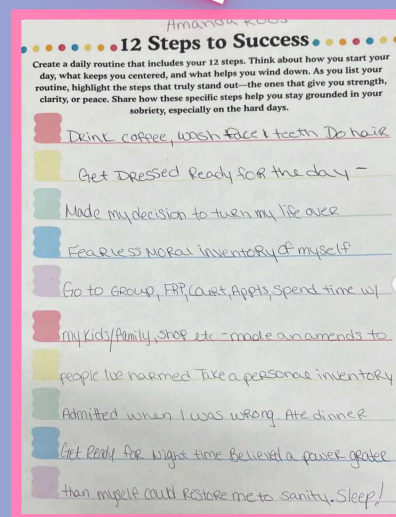 Amanda
12 Steps to Success
Create a daily routine that includes your 12 steps. Think about how you start your
day, what keeps you centered, and what helps you wind down. As you list your
routine, highlight the steps that truly stand out—the ones that give you strength,
clarity, or peace. Share how these specific steps help you stay grounded in your
sobriety, especially on the hard days.
Drink coffee, wash face & teeth Do hair
Get Dressed Ready for the day -
Made my decision to turn my life over
Fearless moral inventory of myself
Go to Group, FRP, Court, Appts, Spend time w/
my kids/family, shop etc - made an amends to
people Ive harmed Take a personal inventory
Admitted when I was wrong. Ate dinner
Get Ready for Night time Believed a power grater
than myself could Restore me to sanity. Sleep!